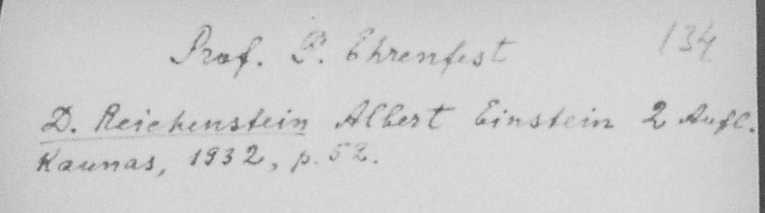 Prof. P. Ehrenfest 134
D. Reichenstein Albert Einstein 2 Aufl.
Kaunas, 1932, p. 52.